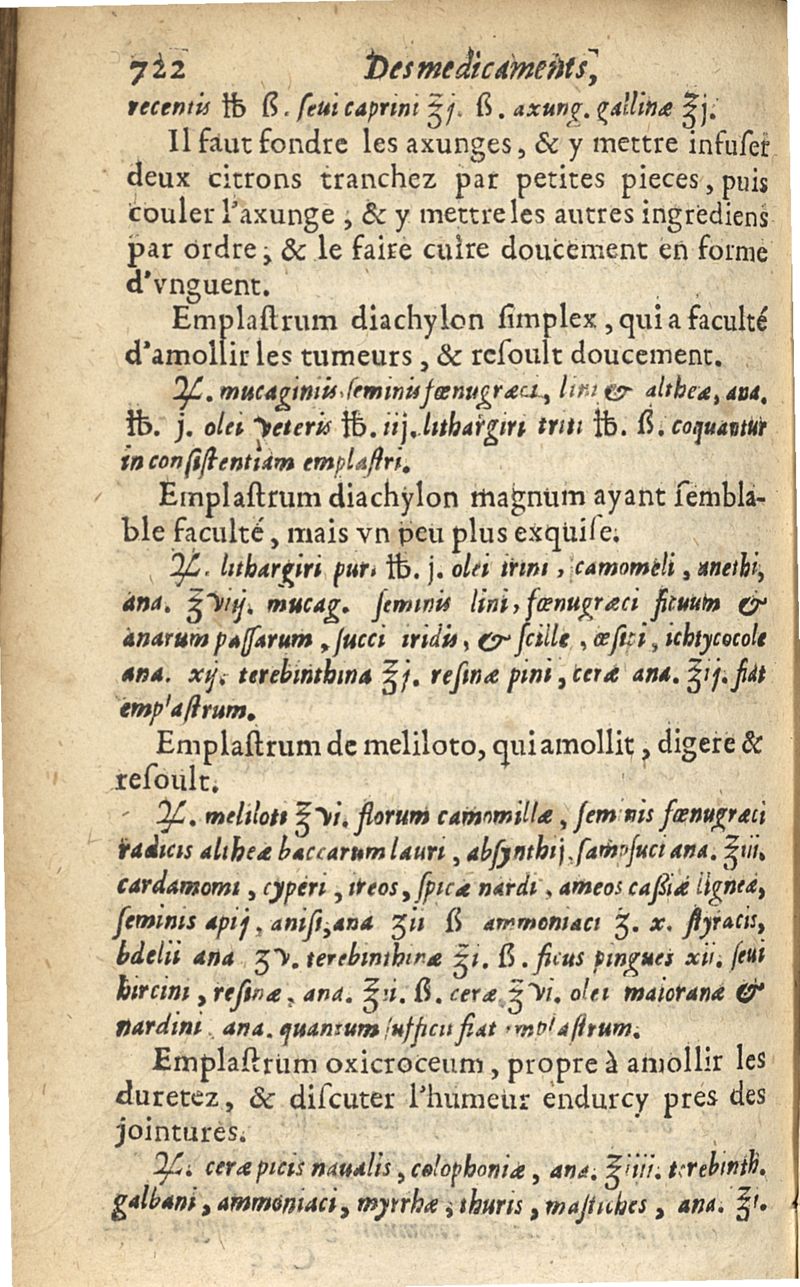 722 Des medicaments,
recentis ℔ ß. seui caprini ℥j. ß. axung. gallinæ ℥j.
Il faut fondre les axunges, & y mettre infuser
deux citrons tranchez par petites pieces, puis
couler l'axunge, & y mettre les autres ingrediens
par ordre, & le faire cuire doucement en forme
d'vnguent.
Emplastrum diachylon simplex, qui a faculté
d'amollir les tumeurs, & resoult doucement.
℞. mucaginis seminis fœnugræci, lini & altheæ, ana.
℔. j. olei veteris ℔. iij. lithargiri triti ℔. ß. coquantur
in consistentiam emplastri.
Emplastrum diachylon magnum ayant sembla-
ble faculté, mais vn peu plus exquise.
℞. lithargiri puri ℔. j. olei irini, camomeli, anethi,
ana. ℥viij. mucag. seminis lini, fœnugræci ficuum &
anarum passarum, succi iridis, & scille, œsipi, ichtycocole
ana. xij. terebinthina ℥j. resinæ pini, ceræ ana. ℥ij. fiat
emplastrum.
Emplastrum de meliloto, qui amollit, digere &
resoult.
℞. meliloti ℥vi. florum camomillæ, seminis fœnugræci
radicis altheæ baccarum lauri, absynthij, sampsuci ana. ℥iii.
cardamomi, cyperi, ireos, spicæ nardi, ameos cassiæ ligneæ,
seminis apij, anisi, ana ʒii ß ammoniaci ʒ. x. styracis,
bdelii ana ʒv. terebinthinæ ℥i. ß. ficus pingues xii. seui
hircini, resinæ, ana. ℥ii. ß. ceræ ℥vi. olei maioranæ &
nardini ana. quantum sufficit fiat emplastrum.
Emplastrum oxicroceum, propre à amollir les
duretez, & discuter l'humeur endurcy pres des
jointures.
℞. ceræ picis naualis, colophoniæ, ana. ℥iiii. terebinth.
galbani, ammoniaci, myrrhæ, thuris, mastiches, ana. ℥i.